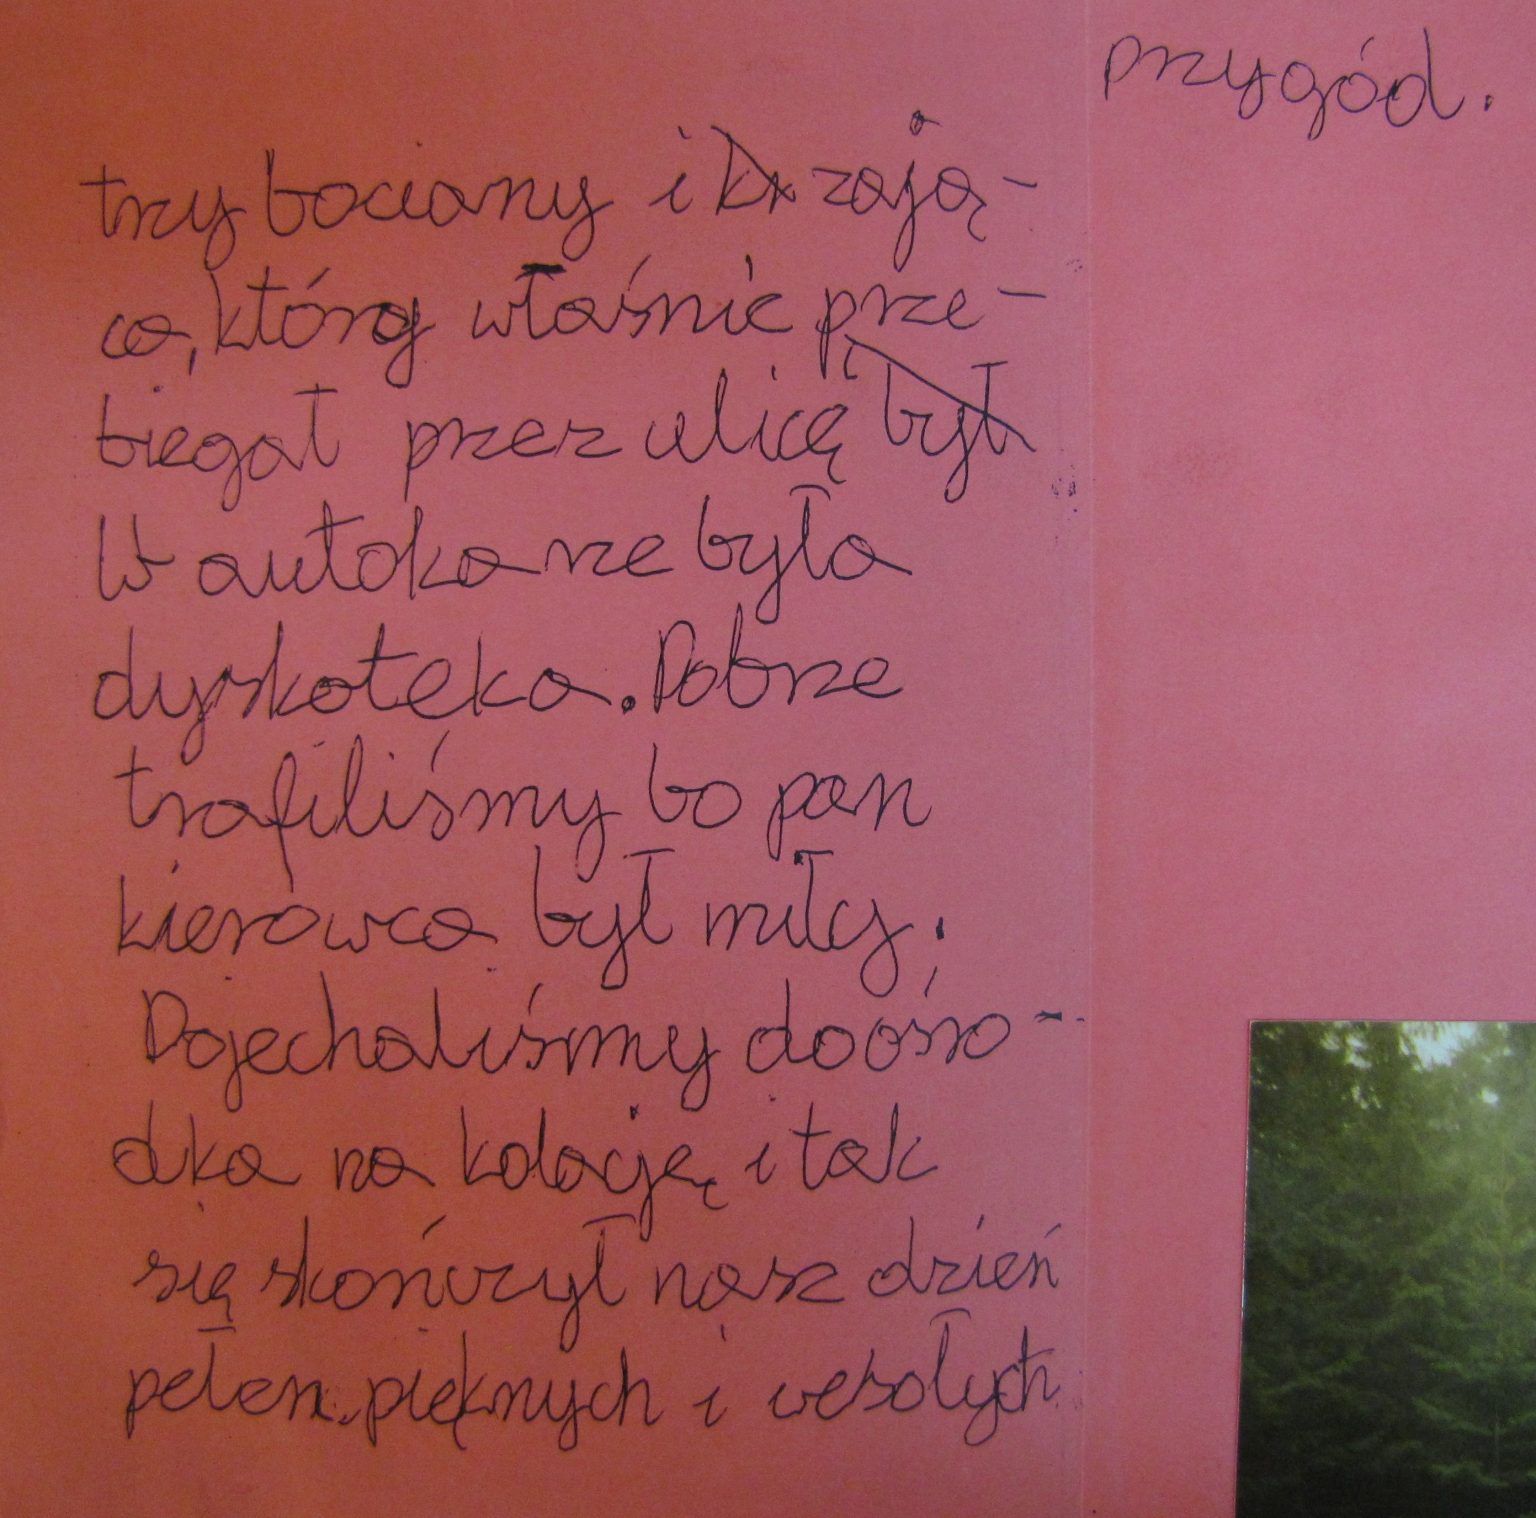 trzy bociany i kr zają-
ca, który właśnie prze-
biegał przez ulicę był
W autokarze była
dyskoteka. Dobrze
trafiliśmy bo pan
kierowca był miły.
Dojechaliśmy do ośro-
dka na kolację i tak
się skończył nasz dzień
pełen pięknych i wesołych
przygód.